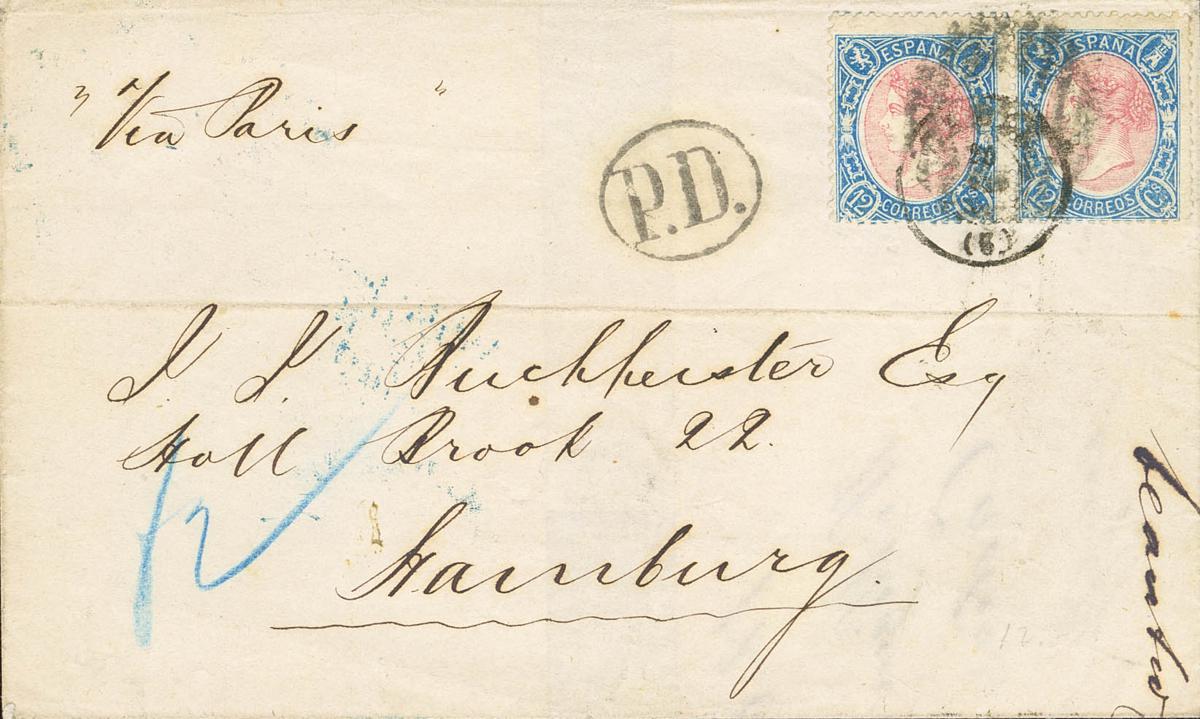 " Via Paris "
P.D.
ESPAÑA
12 CORREOS Cs
ESPAÑA
12 CORREOS Cs
(6)
J. J. Buchheister Esq
Holl Brook 22.
Hamburg.
12
12.